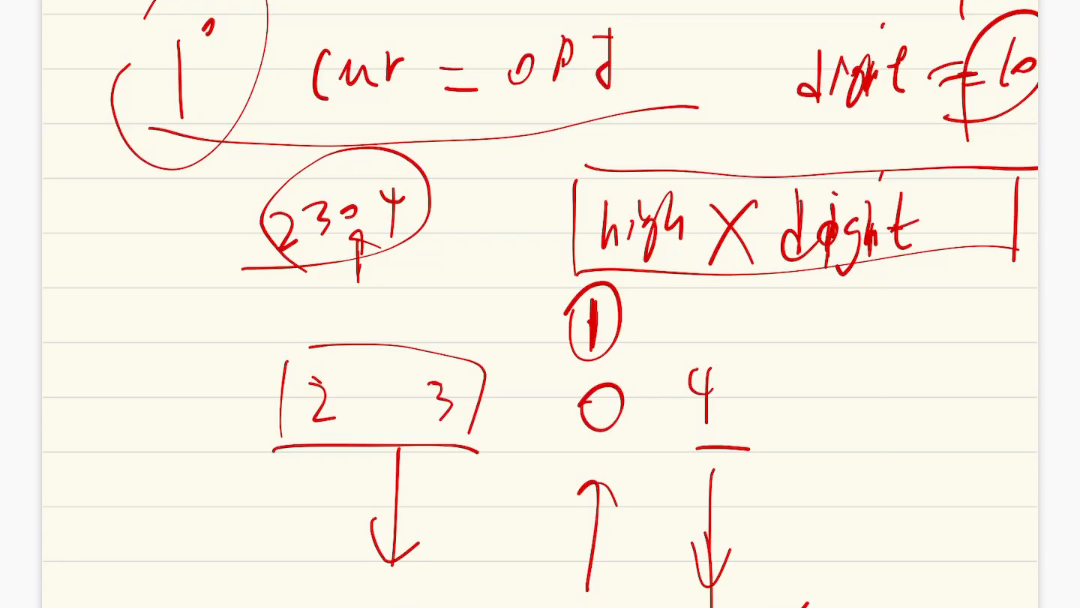 1° cur = 0 digit = 10
2304 high × digit
1
2 3 0 4